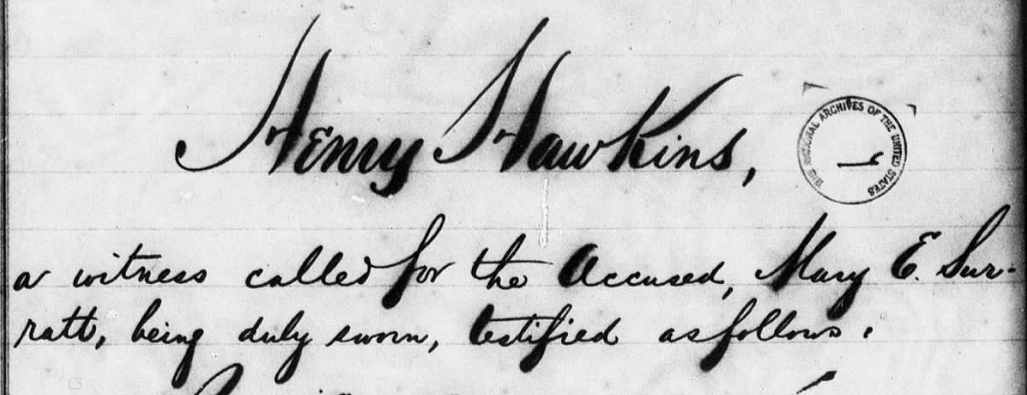 Henry Hawkins,
THE NATIONAL ARCHIVES OF THE UNITED STATES
a witness called for the Accused, Mary E. Sur-
ratt, being duly sworn, testified as follows.